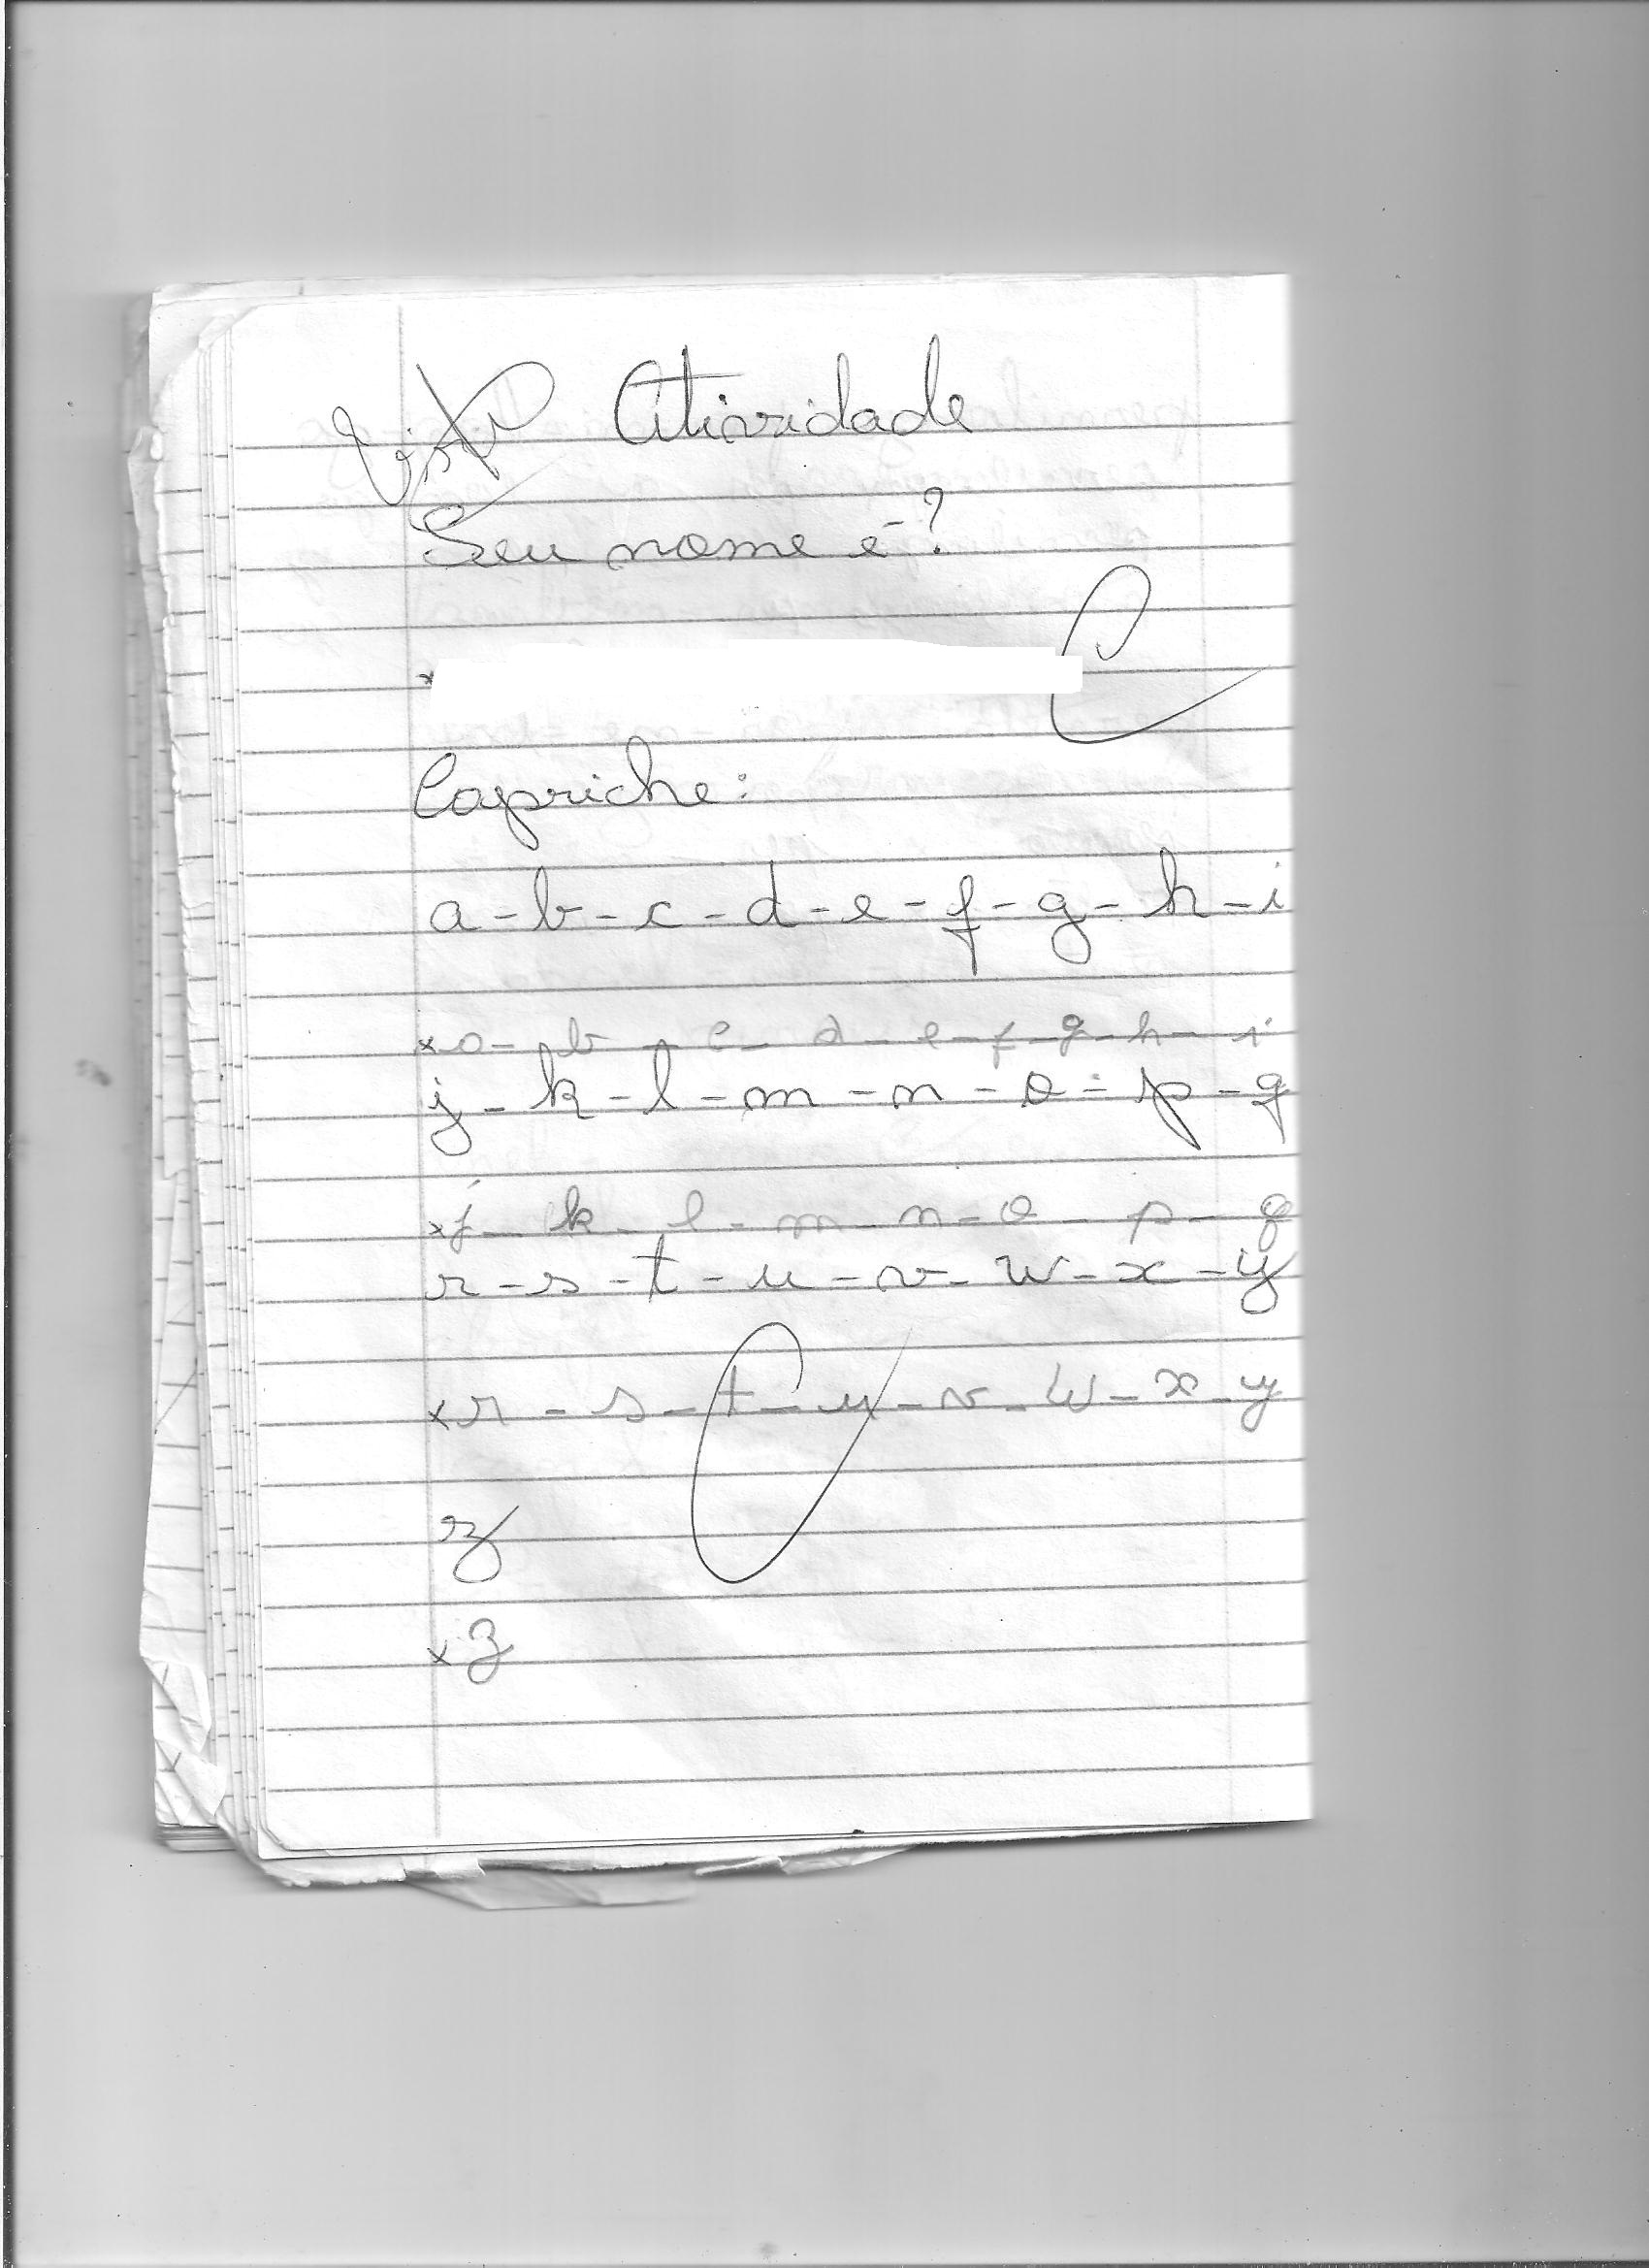 Visto Atividade
Seu nome é?
x
Capriche:
a - b - c - d - e - f - g - h - i
x a - b - c - d - e - f - g - h - i
j - k - l - m - n - o - p - q
x j - k - l - m - n - o - p - q
r - s - t - u - v - w - x - y
x r - s - t - u - v - w - x - y
z
x z